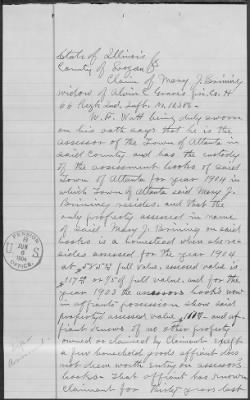 State of Illinois
County of Logan
Claim of Mary J.
widow of Alvin Co. H
66 Regt Ind. Inft. No.
W. F. Watt being duly sworn
on his oath says that he is the
assessor of the Town of Atlanta in
said County and has the custody
of the assessment books of said
Town of Atlanta for year 1904 in
which Town of Atlanta said Mary J.
resides, and that the
only property assessed in name
of said Mary J. on said
books is a homestead where she
sides assessed for the year 1904
at full value, assessed value is
or 1/5 of full value, and for the
year 1903 the assessors books now
in affiants possession show said
property assessed value and af-
fiant knows of no other property
owned or claimed by claimant except
a few household goods affiant does
not deem worth entry on assessor's
books. That affiant has known
claimant for thirty years last
PENSION
8
JUN
1904
U S
OFFICE.